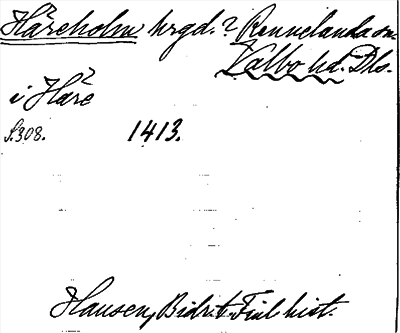 Häreholm hrgd. ? Rennelanda sn.
Valbo hd. Dls.
i Häre
S. 308. 1413.
Hausen, Bidr. t. Finl. hist.